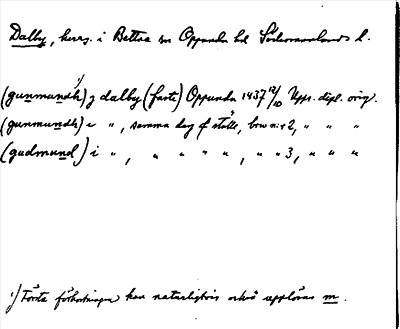 Dalby, herrg. i Bettna sn Oppunda hd Södermanlands l.
(gunmundh)¹⁾ j dalby (faste) Oppunda 1437 12/10 Upps. dipl. orig.
(gunmundh) i " , samma dag o ställe, brev nr 2, " " "
(gudmund) i " , " " " " , " " 3, " " "
¹⁾ Första förkortningen kan naturligtvis också upplösas m.